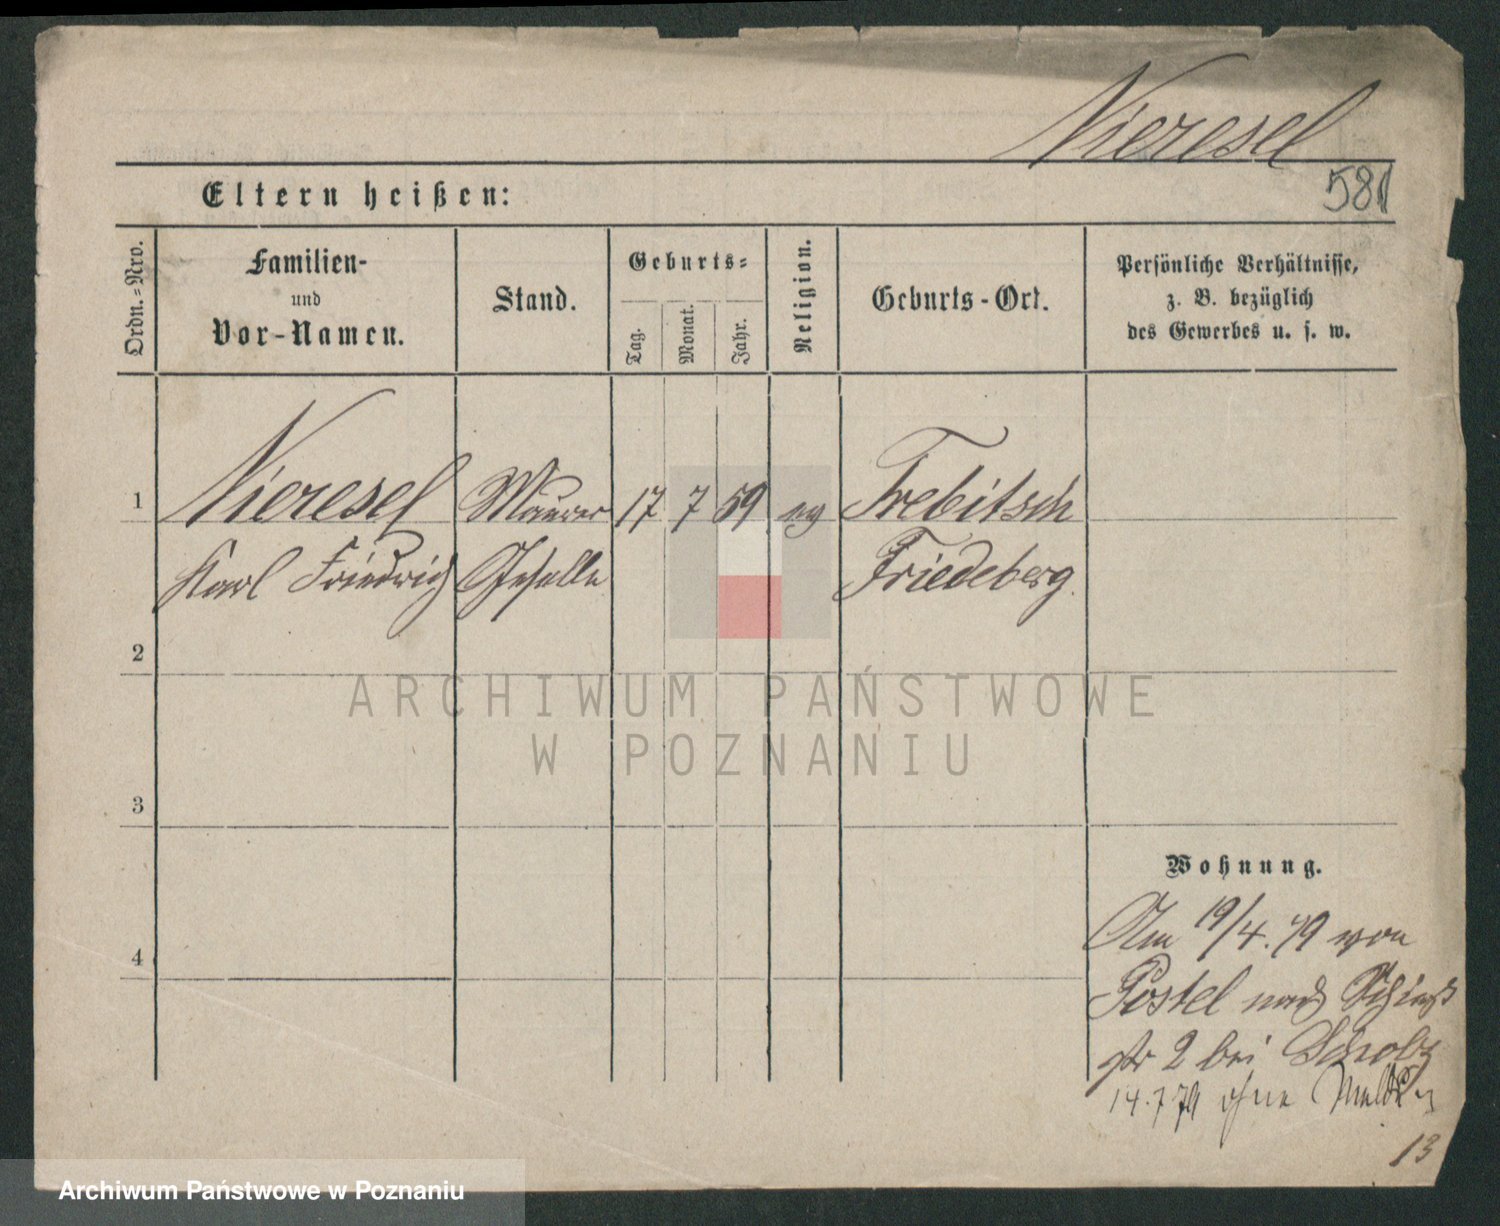 Nieresel
581
Eltern heißen:
Ordn.-Nro.
Familien-
und
Vor-Namen.
Stand.
Geburts-
Tag.
Monat.
Jahr.
Religion.
Geburts-Ort.
Persönliche Verhältnisse,
z. B. bezüglich
des Gewerbes u. s. w.
1 Nieresel Maurer 17 7 59 ev Trebitsch
Karl Friedrich Geselle Friedeberg.
2
3
4
ARCHIWUM PAŃSTWOWE
W POZNANIU
Wohnung.
Am 19/4.79 von
Postel nach
str 2 bei
14.7 79 ohne
13
Archiwum Państwowe w Poznaniu